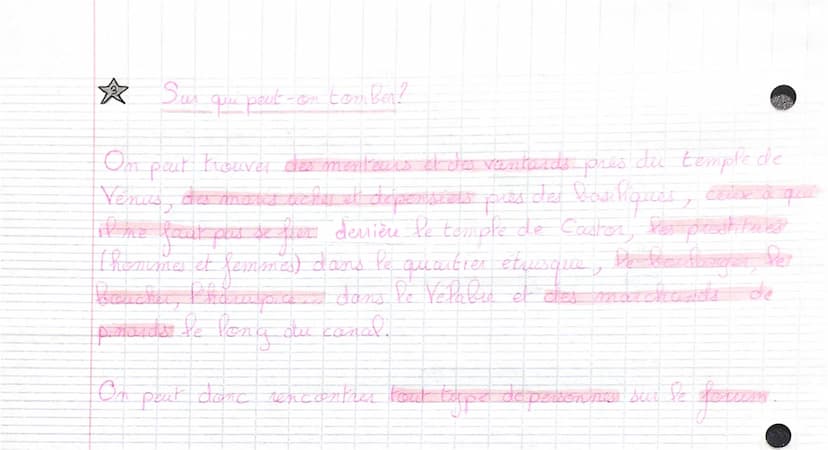 3 Sur qui peut-on tomber?
On peut trouver des menteurs et des vantards près du temple de
Vénus, des maris riches et dépensiers près des basiliques, ceux à qui
il ne faut pas se fier derrière le temple de Castor, les prostitués
(hommes et femmes) dans le quartier étrusque, le boulanger, le
boucher, l'haruspice... dans le Vélabre et des marchands de
le long du canal.
On peut donc rencontrer tout type de personnes sur le forum.